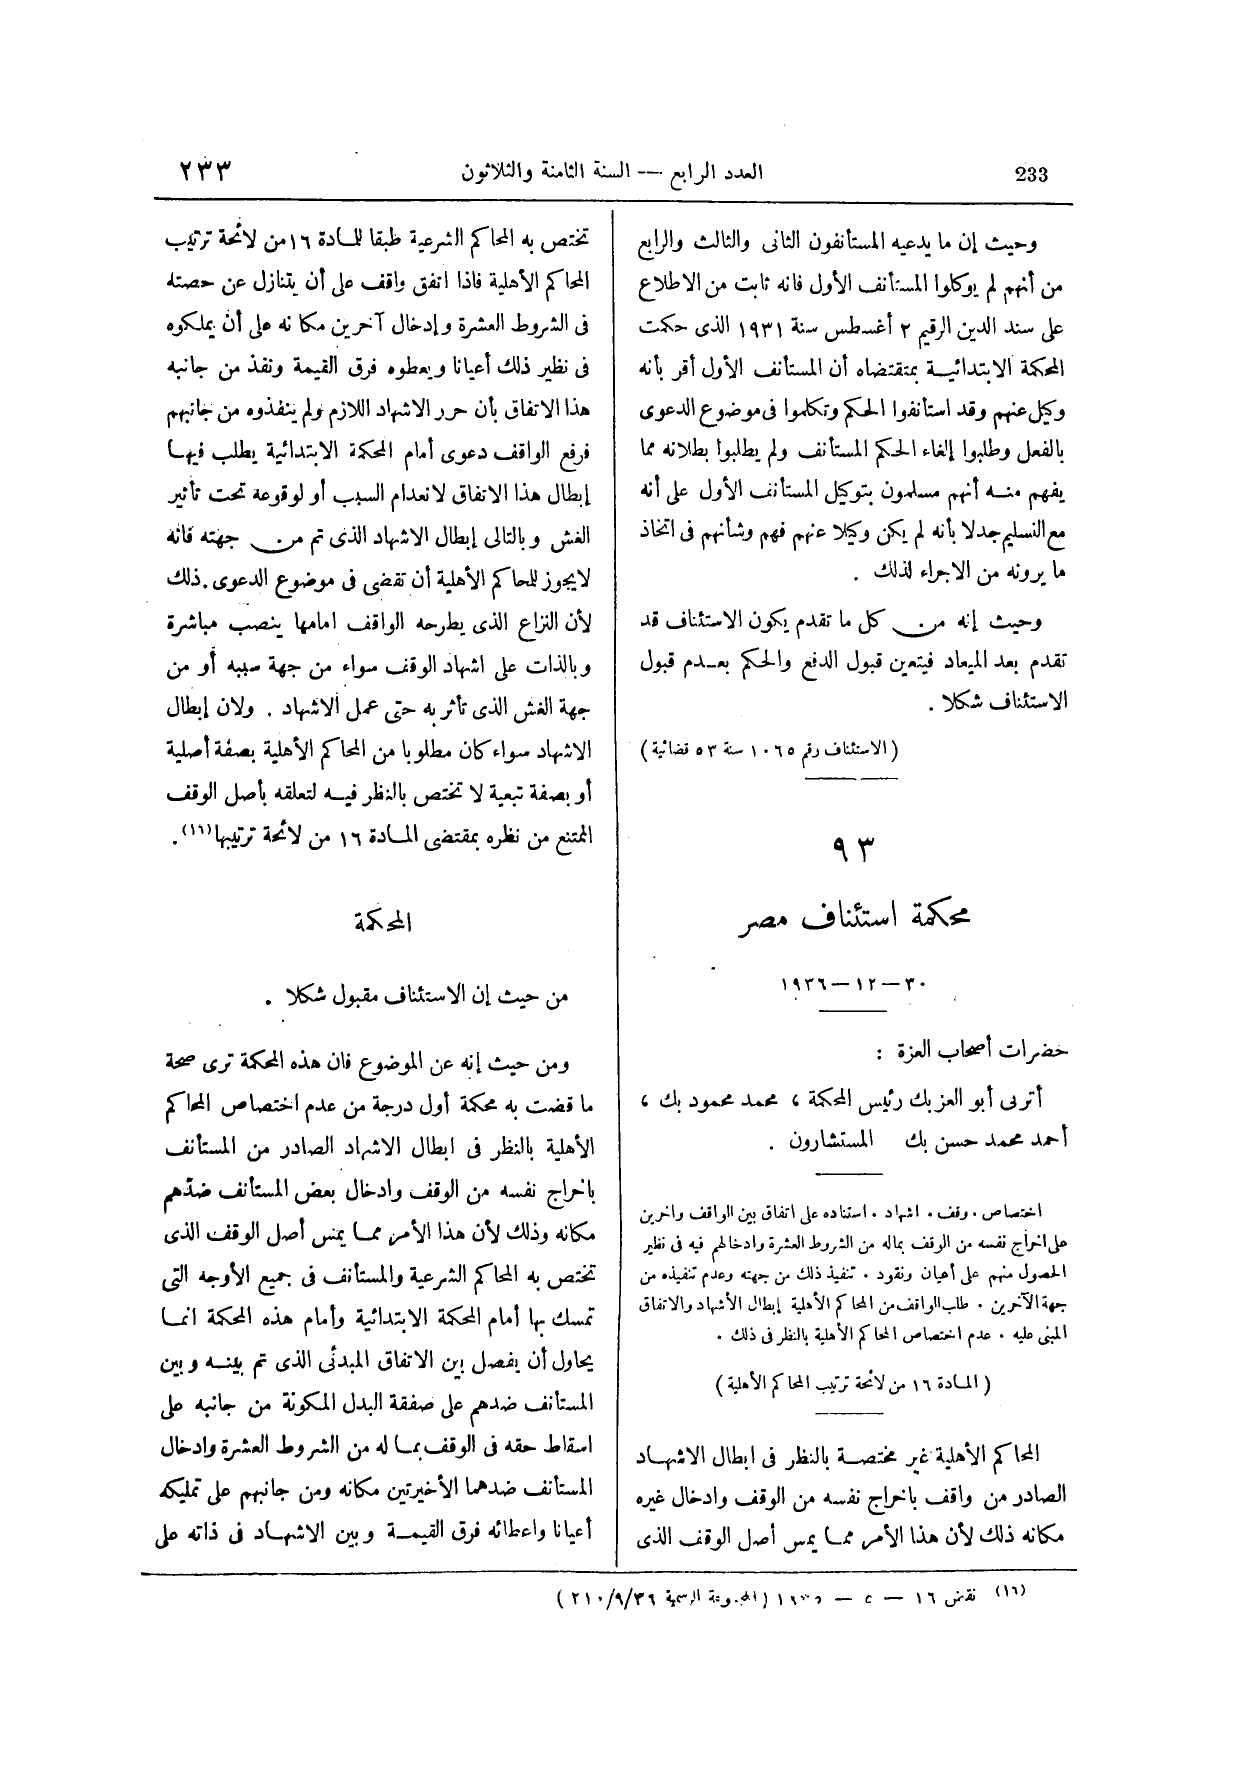 233 العدد الرابع — السنة الثامنة والثلاثون ٢٣٣
وحيث إن ما يدعيه المستأنفون الثانى والثالث والرابع
من أنهم لم يوكلوا المستأنف الأول فانه ثابت من الاطلاع
على سند الدين الرقيم ٢ أغسطس سنة ١٩٣١ الذى حكمت
المحكمة الابتدائيـة بمقتضاه أن المستأنف الأول أقر بأنه
وكيل عنهم وقد استأنفوا الحكم وتكلموا فى موضوع الدعوى
بالفعل وطلبوا إلغاء الحكم المستأنف ولم يطلبوا بطلانه مما
يفهم منـه أنهم مسلمون بتوكيل المستأنف الأول على أنه
مع التسليم جدلا بأنه لم يكن وكيلا عنهم فهم وشأنهم فى اتخاذ
ما يرونه من الاجراء لذلك .
وحيث إنه من كل ما تقدم يكون الاستئناف قد
تقدم بعد الميعاد فيتعين قبول الدفع والحكم بعـدم قبول
الاستئناف شكلا .
( الاستئناف رقم ١٠٦٥ سنة ٥٣ قضائية )
٩٣
محكمة استئناف مصر
٣٠ — ١٢ — ١٩٣٦
حضرات أصحاب العزة :
أترى أبو العز بك رئيس المحكمة ، محمد محمود بك ،
أحمد محمد حسن بك المستشارون .
اختصاص . وقف . اشهاد . استناده على اتفاق بين الواقف وآخرين
على اخراج نفسه من الوقف بماله من الشروط العشرة وادخالهم فيه فى نظير
الحصول منهم على أعيان ونقود . تنفيذ ذلك من جهته وعدم تنفيذه من
جهة الآخرين . طلب الواقف من المحاكم الأهلية إبطال الأشهاد والاتفاق
المبنى عليه . عدم اختصاص المحاكم الأهلية بالنظر فى ذلك .
( المـادة ١٦ من لائحة ترتيب المحاكم الأهلية )
المحاكم الأهلية غير مختصـة بالنظر فى ابطال الاشهـاد
الصادر من واقف باخراج نفسه من الوقف وادخال غيره
مكانه ذلك لأن هذا الأمر ممـا يمس أصل الوقف الذى
تختص به المحاكم الشرعية طبقا للمـادة ١٦ من لائحة ترتيب
المحاكم الأهلية فاذا اتفق واقف على أن يتنازل عن حصته
فى الشروط العشرة وإدخال آخرين مكانه على أن يملكوه
فى نظير ذلك أعيانا ويعطوه فرق القيمة ونفذ من جانبه
هذا الاتفاق بأن حرر الاشهاد اللازم ولم ينفذوه من جانبهم
فرفع الواقف دعوى أمام المحكمة الابتدائية يطلب فيهـا
إبطال هذا الاتفاق لانعدام السبب أو لوقوعة تحت تأثير
الغش وبالتالى إبطال الاشهاد الذى تم من جهته فانه
لايجوز للمحاكم الأهلية أن تقضى فى موضوع الدعوى . ذلك
لأن النزاع الذى يطرحه الواقف امامها ينصب مباشرة
وبالذات على اشهاد الوقف سواء من جهة سببه أو من
جهة الغش الذى تأثر به حتى عمل الاشهاد . ولان إبطال
الاشهاد سواء كان مطلوبا من المحاكم الأهلية بصفة أصلية
أو بصفة تبعية لا تختص بالنظر فيـه لتعلقه بأصل الوقف
الممتنع من نظره بمقتضى المـادة ١٦ من لائحة ترتيبها (١٦) .
المحكمة
من حيث إن الاستئناف مقبول شكلا .
ومن حيث إنه عن الموضوع فان هذه المحكمة ترى صحة
ما قضت به محكمة أول درجة من عدم اختصاص المحاكم
الأهلية بالنظر فى ابطال الاشهاد الصادر من المستأنف
باخراج نفسه من الوقف وادخال بعض المستأنف ضدهم
مكانه وذلك لأن هذا الأمر ممـا يمس أصل الوقف الذى
تختص به المحاكم الشرعية والمستأنف فى جميع الأوجه التى
تمسك بها أمام المحكمة الابتدائية وأمام هذه المحكمة انمـا
يحاول أن يفصل بين الاتفاق المبدئى الذى تم بينـه وبين
المستأنف ضدهم على صفقة البدل المكونة من جانبه على
اسقاط حقه فى الوقف بمـا له من الشروط العشرة وادخال
المستأنف ضدهما الأخيرتين مكانه ومن جانبهم على تمليكه
أعيانا واعطائه فرق القيمـة وبين الاشهـاد فى ذاته على
(١٦) نقض ١٦ — ٥ — ١٩٣٥ ( المجموعة الرسمية ٢١٠/٩/٣٦ )